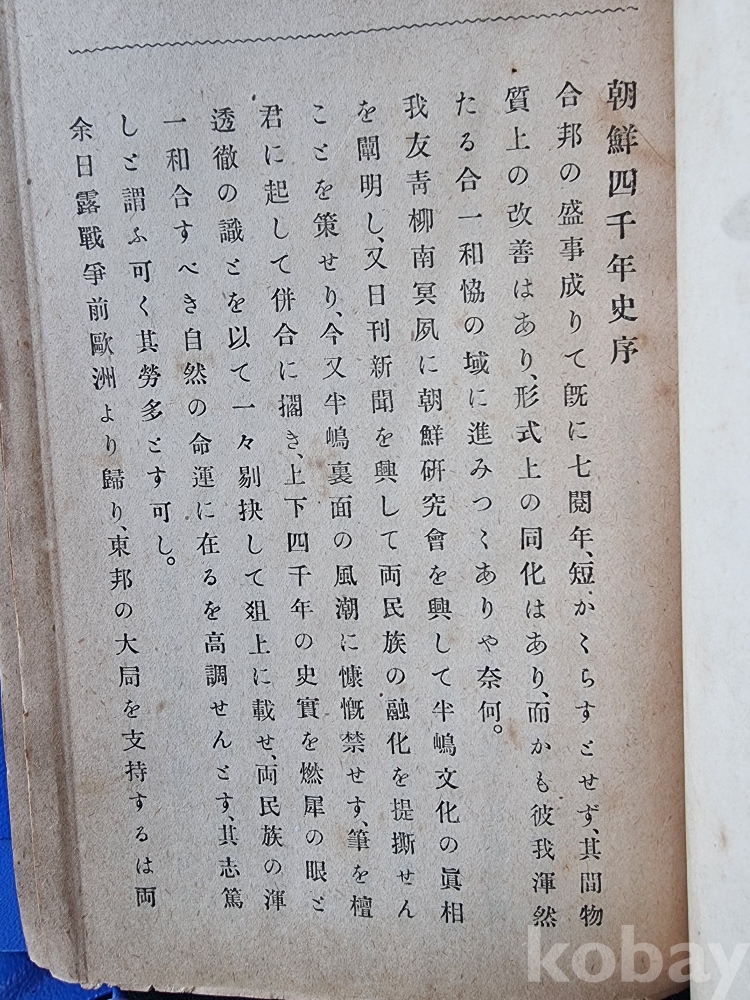 朝鮮四千年史序
合邦の盛事成りて既に七閲年、短かくらすとせず、其間物
質上の改善はあり、形式上の同化はあり、而かも彼我渾然
たる合一和恊の域に進みつくありや奈何。
我友靑柳南冥夙に朝鮮硏究會を興して半嶋文化の眞相
を闡明し、又日刊新聞を興して両民族の融化を提撕せん
ことを策せり、今又半嶋裏面の風潮に慷慨禁せす、筆を檀
君に起して併合に擱き、上下四千年の史實を燃犀の眼と
透徹の識とを以て一々剔抉して爼上に載せ、両民族の渾
一和合すべき自然の命運に在るを高調せんとす、其志篤
しと謂ふ可く其勞多とす可し。
余日露戰爭前歐洲より歸り、東邦の大局を支持するは両
kobay